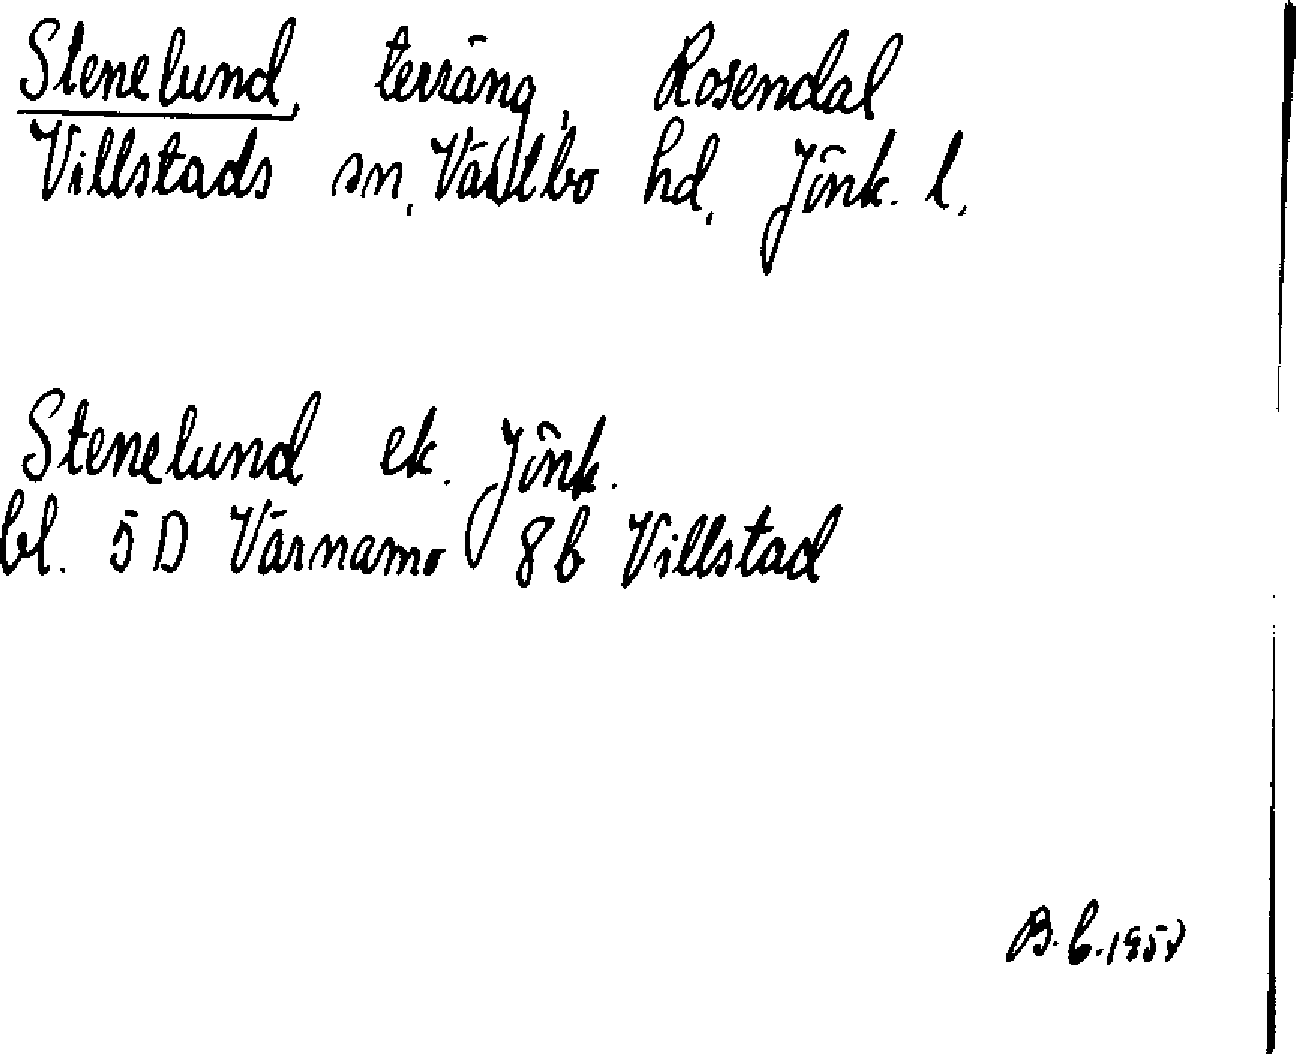 Stenelund, terräng, Rosendal
Villstads sn, Västbo hd, Jönk. l.
Stenelund ek. Jönk.
bl. 5D Värnamo 8b Villstad